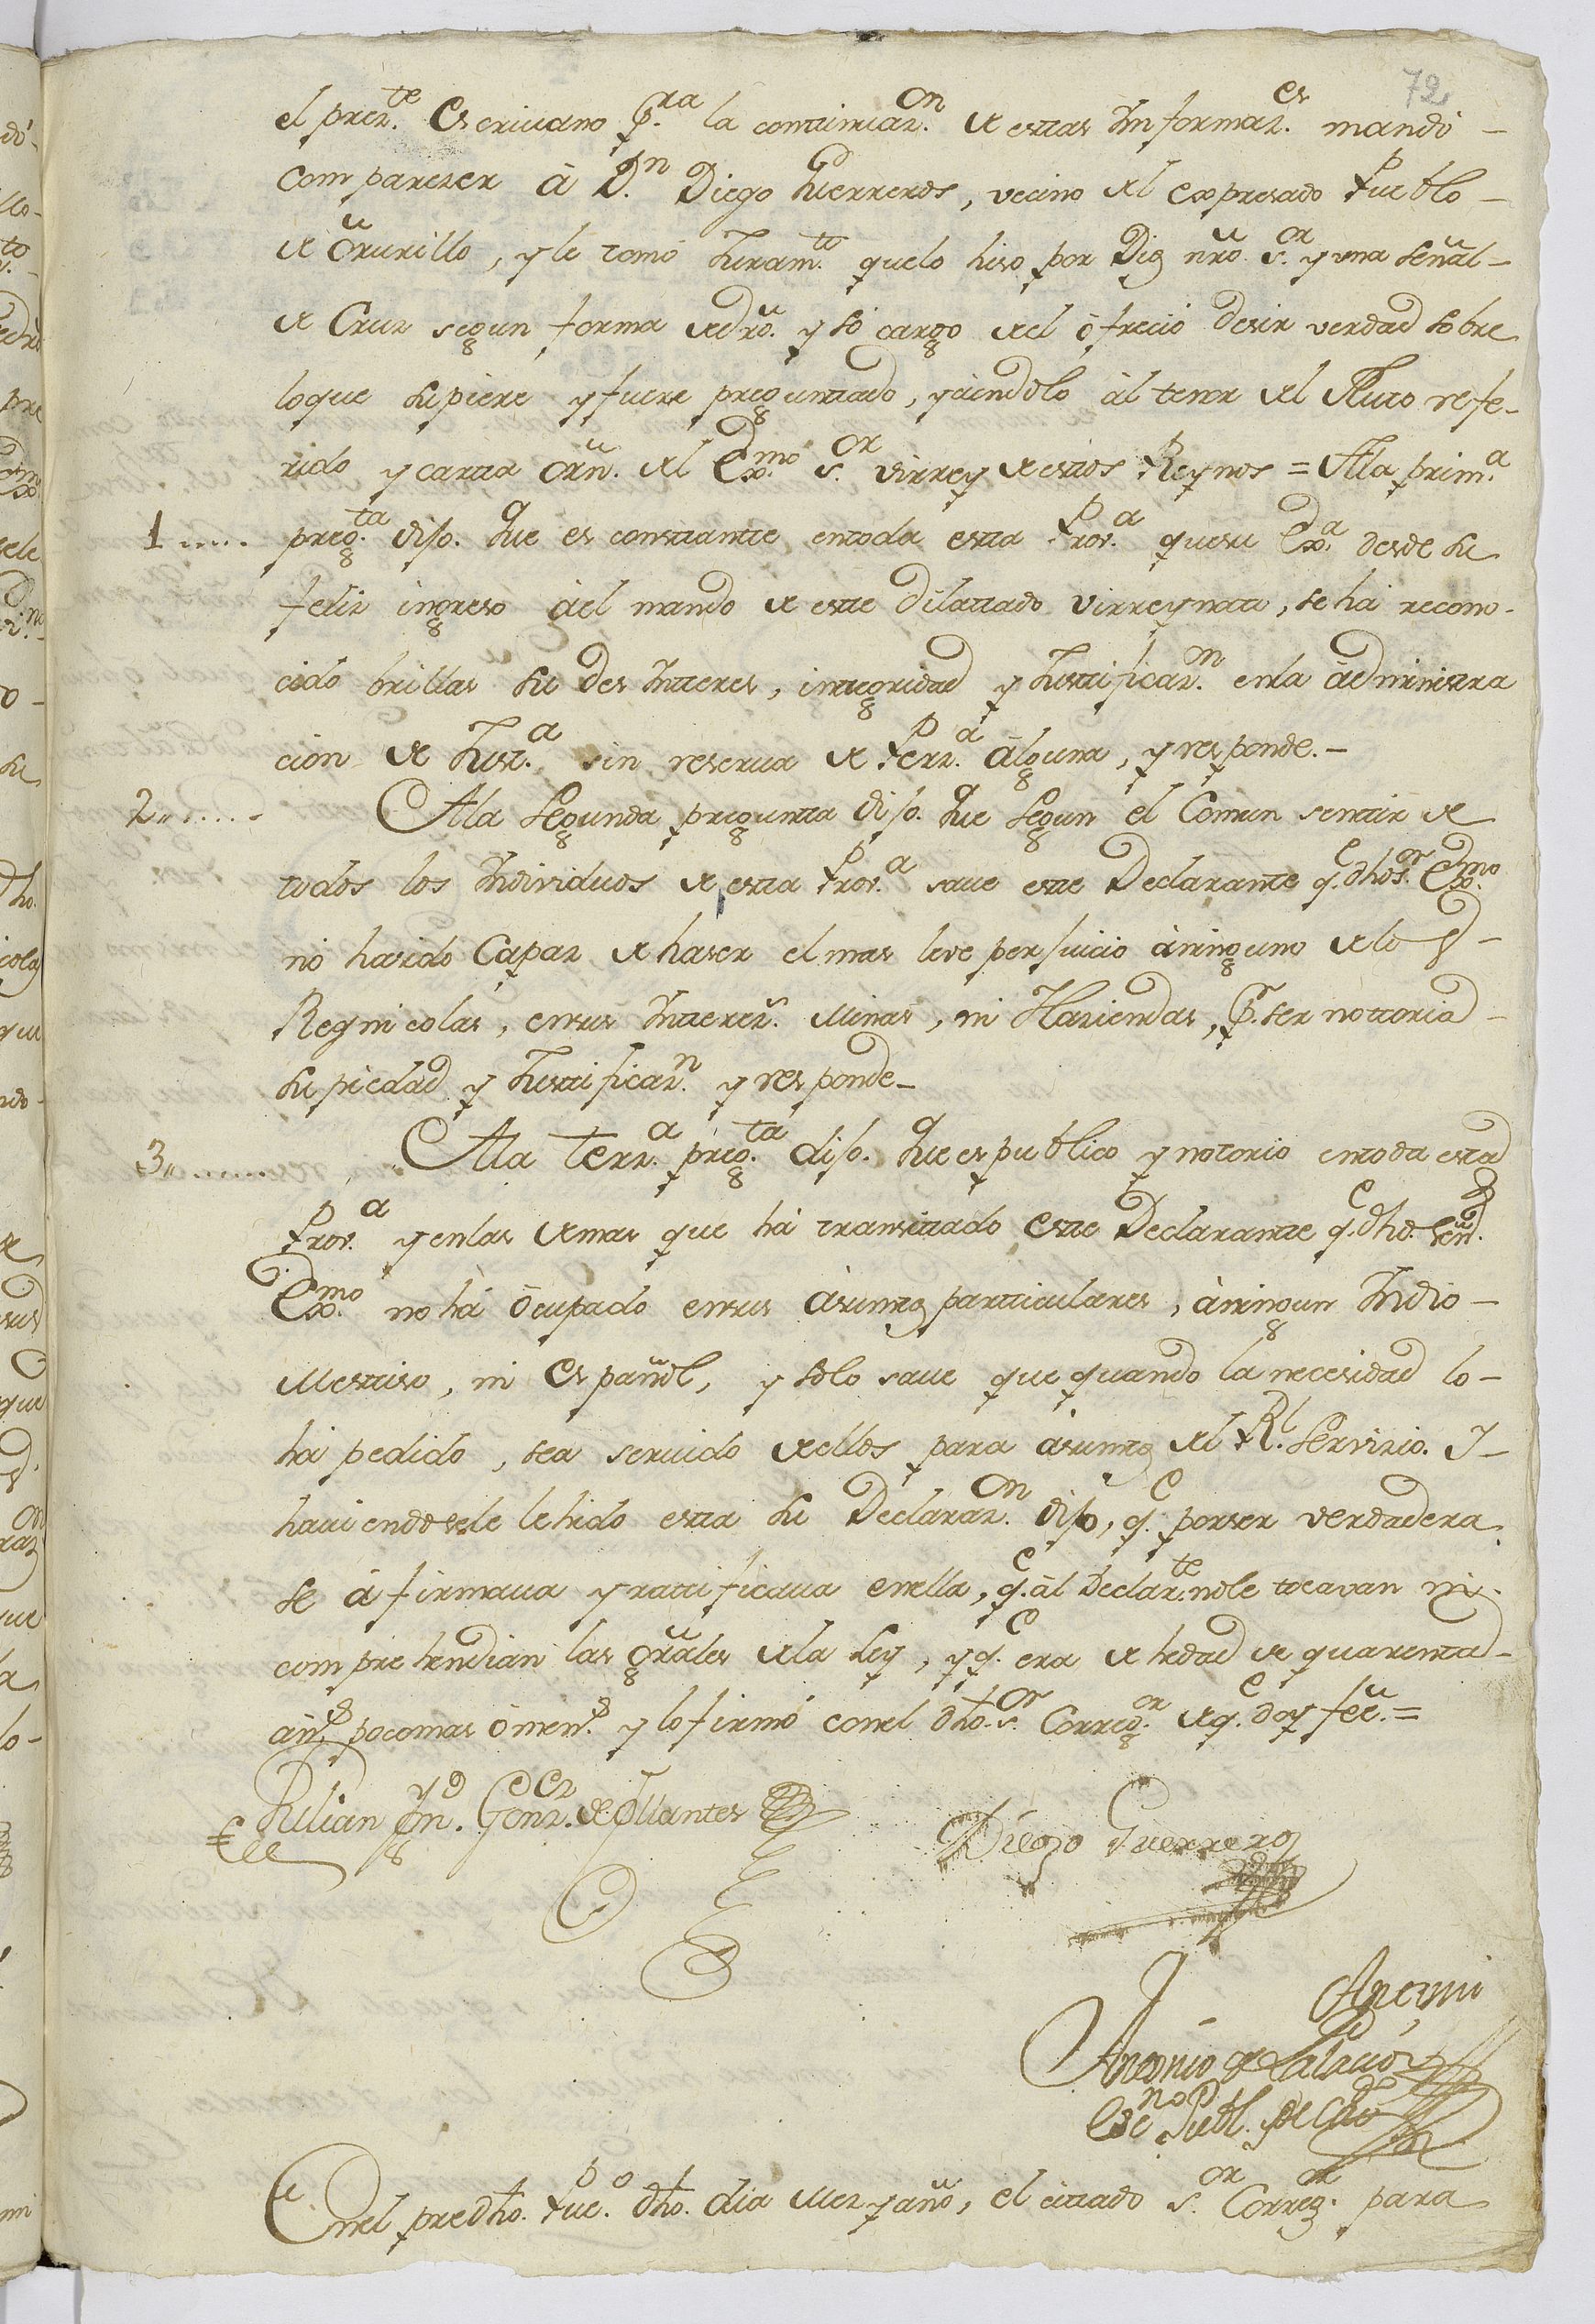 72
el prez.te Escriuano p.ra la continuaz.on de estas Informaz.es mandó
comparezer â D.n Diego Guerreros, vecino del expresado Pueblo
de Orurillo, y le tomó Juram.to quelo hiso por Dios nrõ s.or y una señal
de Cruz segun forma dedrõ. y só cargo del ôfreció desir verdad sobre
loque supiere y fuere preguntado, y siendolo âl tenor del Auto refe-
rido y carta orñ. del Exmo. s.or Virrey de estos Reynos = Ala prim.a
1 preg.ta dijo. Que es constante entoda esta Prov.a quesu Ex.a desde su
felis ingreso âel mando de este dilatado Virreynato, se há recono-
cido brillar su des Interes, integridad y Justificaz.on enla âdministra
cion de Just.a sin reserua de Perz.a âlguna, y responde.-
2 Ala segunda pregunta dijo. Que segun el Comun sentir de
todos los Individuos de esta Prov.a saue este Declarante q.e dho s.or Ex.mo
no hasido Capaz de haser el mas leve perjuicio âninguno delos
Regnicolas, ensus Interez.s Minas, ni Haziendas, p.r ser nottoria
su piedad y Justificaz.n y responde-
3 Ala terz.a preg.ta dijo. Que es publico y notorio entoda esta
Prov.a y enlas demas que há transitado este Declarante q.e dho. señ.or
Ex.mo no há ôcupado ensus âsumtos particulares, âningun Indio-
Mestiso, ni Español, y solo saue que quando la necesidad lo-
há pedido, sea seruido dellos para âsumtos del R.l Servizio. Y-
hauiendosele lehido esta su Declaraz.on dijo, q.e porser verdadera
se âfirmaua y ratificaua enella, q.e âl Declar.te nole tocavan ni
comprehendian las grãles dela Ley, y q.e era de hedad de quarenta
âñ.s pocomas ômen.s y lo firmó conel dho. s.or Correg.or deq.e doy feè.=
Julian Ign.o Gonz.ez de Diego Guerreros
Antemi
Antonio de Palacios
Esc.no Publ. y de Cav.do
Enel predho. Pue.o dho. dia Mez y año, el citado s.or Correg.or para